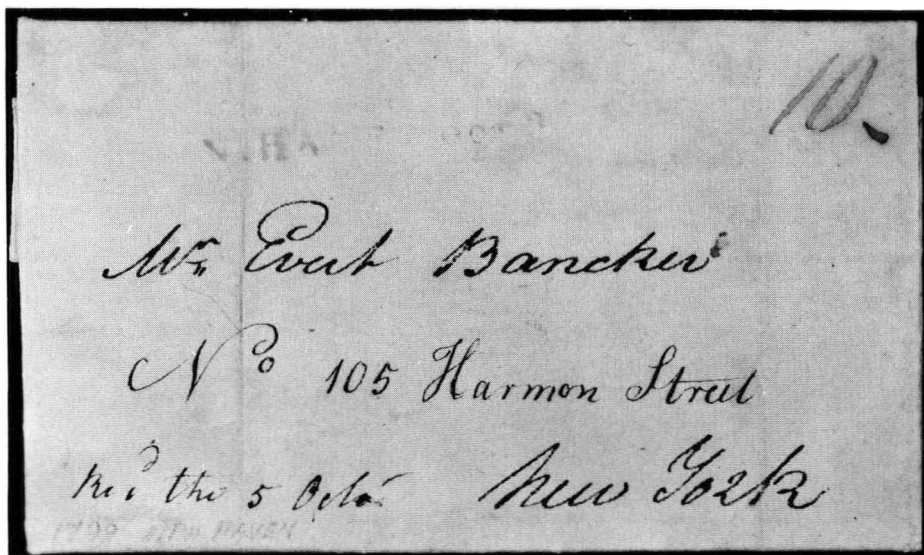 10.
Mr. Evert Bancker
No 105 Harmon Street
Recd the 5 Octor New York
NEW HAVEN